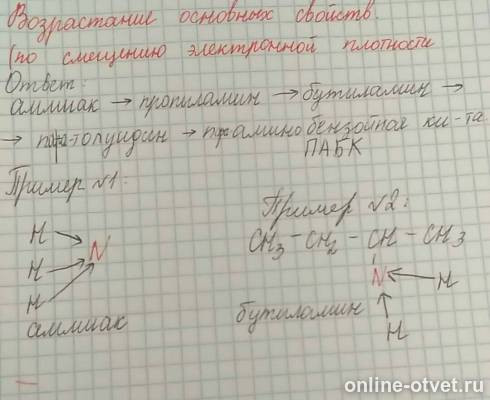 Возрастание основных свойств.
(по смещению электронной плотности
Ответ:
аммиак → пропиламин → бутиламин →
→ пара-толуидин → п-амино бензойная ки-та
ПАБК
Пример №1:
H
H N
H
аммиак
Пример №2:
CH3 - CH2 - CH - CH3
N H
H
бутиламин
online-otvet.ru